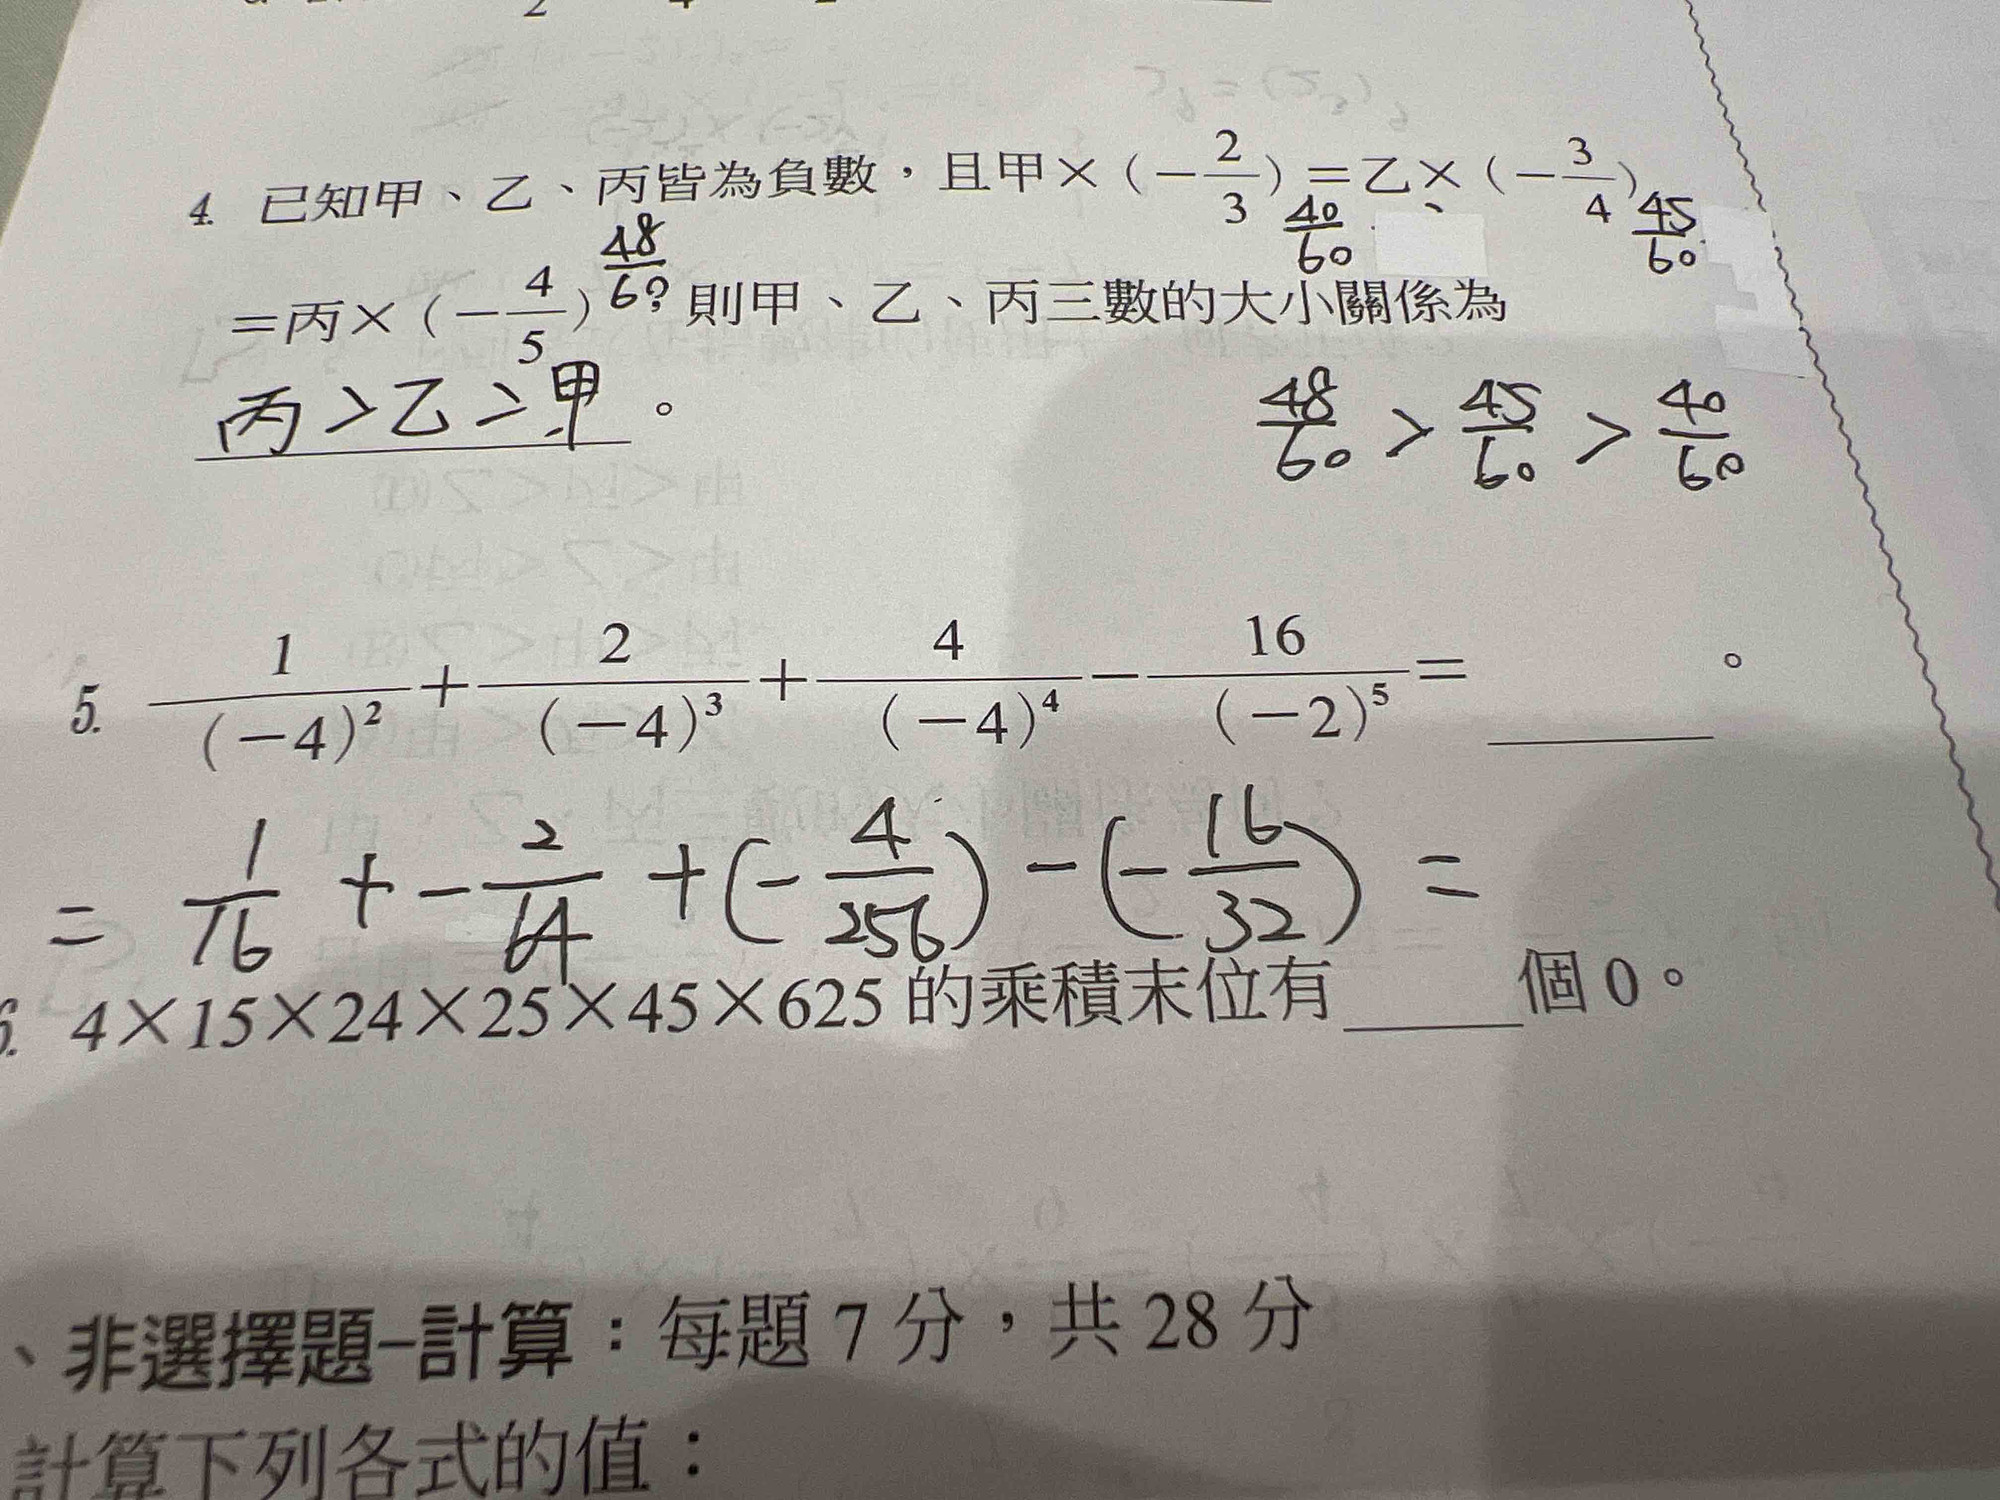 4. 已知甲、乙、丙皆為負數，且甲×(－2/3)＝乙×(－3/4)
40/60 45/60
＝丙×(－4/5)，則甲、乙、丙三數的大小關係為
48/60
丙>乙>甲。
48/60 > 45/60 > 40/60
5. 1/(－4)²＋2/(－4)³＋4/(－4)⁴－16/(－2)⁵＝______。
= 1/16 + -2/64 + (-4/256) - (-16/32) =
6. 4×15×24×25×45×625 的乘積末位有______個0。
、非選擇題–計算：每題 7 分，共 28 分
計算下列各式的值：